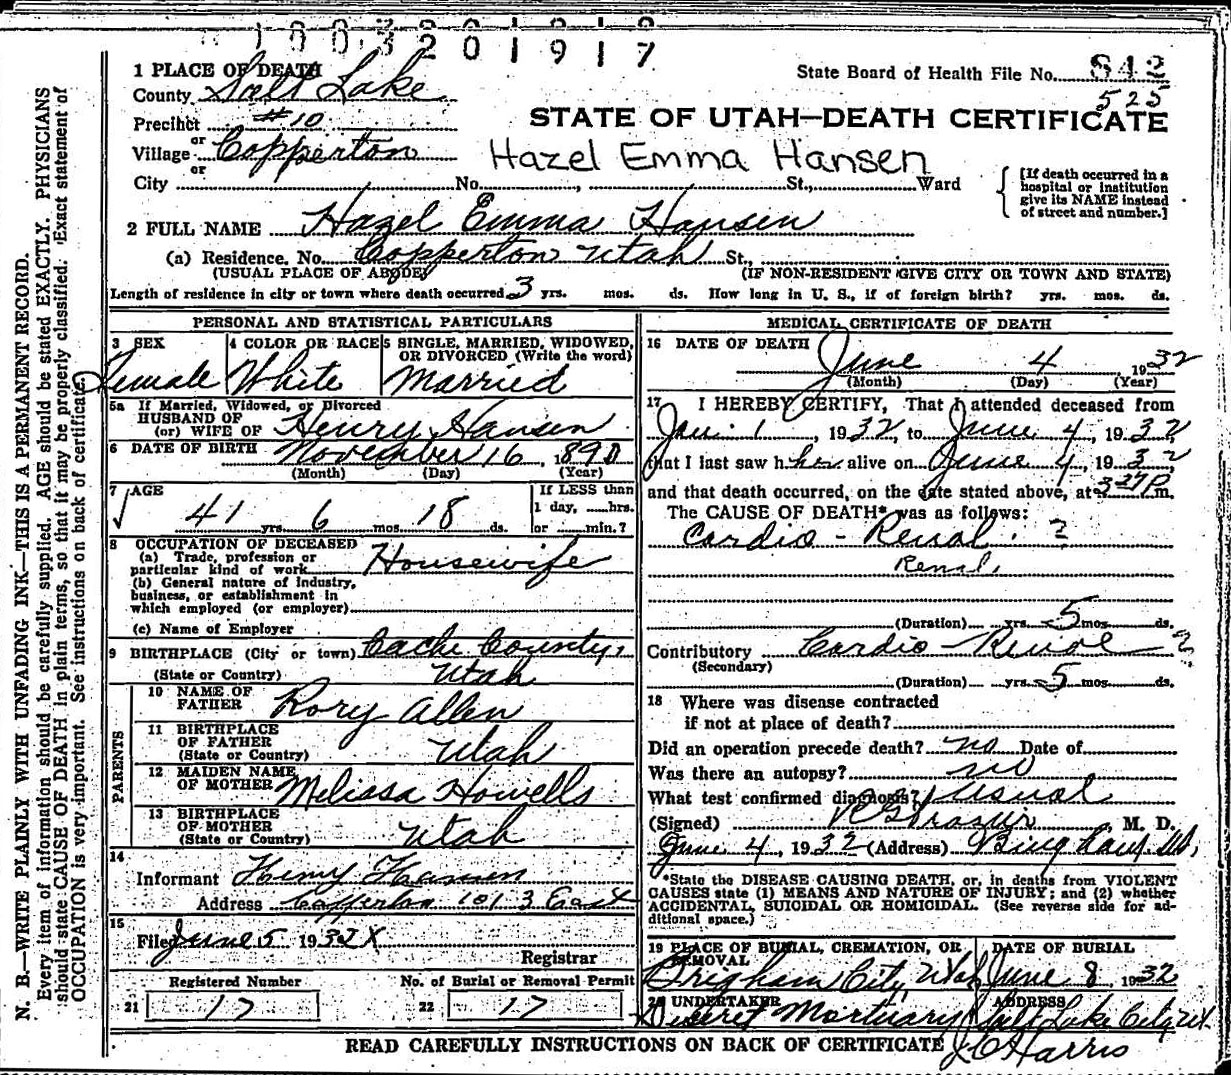 1003201917
1 PLACE OF DEATH
County Salt Lake
State Board of Health File No. 842
525
Precinct #10
or
Village Copperton
or
STATE OF UTAH—DEATH CERTIFICATE
Hazel Emma Hansen
City No. , St., Ward
[If death occurred in a hospital or institution give its NAME instead of street and number.]
2 FULL NAME Hazel Emma Hansen
(a) Residence. No. Copperton Utah St.,
(USUAL PLACE OF ABODE) (IF NON-RESIDENT GIVE CITY OR TOWN AND STATE)
Length of residence in city or town where death occurred 3 yrs. mos. ds. How long in U. S., if of foreign birth? yrs. mos. ds.
PERSONAL AND STATISTICAL PARTICULARS
3 SEX 4 COLOR OR RACE 5 SINGLE, MARRIED, WIDOWED,
OR DIVORCED (Write the word)
Female White Married
5a If Married, Widowed, or Divorced
HUSBAND OF
(or) WIFE OF Henry Hansen
6 DATE OF BIRTH November 16, 1890
(Month) (Day) (Year)
7 AGE
41 yrs. 6 mos. 18 ds.
If LESS than
1 day, hrs.
or min.?
8 OCCUPATION OF DECEASED
(a) Trade, profession or
particular kind of work Housewife
(b) General nature of industry,
business, or establishment in
which employed (or employer)
(c) Name of Employer
9 BIRTHPLACE (City or town) Cache County,
(State or Country) Utah
PARENTS
10 NAME OF
FATHER Rory Allen
11 BIRTHPLACE
OF FATHER
(State or Country) Utah
12 MAIDEN NAME
OF MOTHER Melissa Howells
13 BIRTHPLACE
OF MOTHER
(State or Country) Utah
14
Informant Henry Hansen
Address Copperton 101 3 East
15
Filed June 5 1932 X
Registrar
Registered Number No. of Burial or Removal Permit
21 17 22 17
MEDICAL CERTIFICATE OF DEATH
16 DATE OF DEATH
June 4 1932
(Month) (Day) (Year)
17 I HEREBY CERTIFY, That I attended deceased from
Jan. 1, 1932, to June 4, 1932,
that I last saw her alive on June 4, 1932,
and that death occurred, on the date stated above, at 3 27 P m.
The CAUSE OF DEATH* was as follows:
Cardio - Renal. ?
Renal.
(Duration) yrs. 5 mos. ds.
Contributory Cardio - Renal ?
(Secondary)
(Duration) yrs. 5 mos. ds.
18 Where was disease contracted
if not at place of death?
Did an operation precede death? no Date of
Was there an autopsy? no
What test confirmed diagnosis? usual
(Signed) , M. D.
June 4, 1932 (Address)
*State the DISEASE CAUSING DEATH, or, in deaths from VIOLENT
CAUSES state (1) MEANS AND NATURE OF INJURY; and (2) whether
ACCIDENTAL, SUICIDAL OR HOMICIDAL. (See reverse side for ad-
ditional space.)
19 PLACE OF BURIAL, CREMATION, OR REMOVAL DATE OF BURIAL
Brigham City, Utah June 8 1932
20 UNDERTAKER ADDRESS
Deseret Mortuary Salt Lake City, Ut
READ CAREFULLY INSTRUCTIONS ON BACK OF CERTIFICATE J C Harris
N. B.—WRITE PLAINLY WITH UNFADING INK—THIS IS A PERMANENT RECORD.
Every item of information should be carefully supplied. AGE should be stated EXACTLY. PHYSICIANS
should state CAUSE OF DEATH in plain terms, so that it may be properly classified. Exact statement of
OCCUPATION is very important. See instructions on back of certificate.